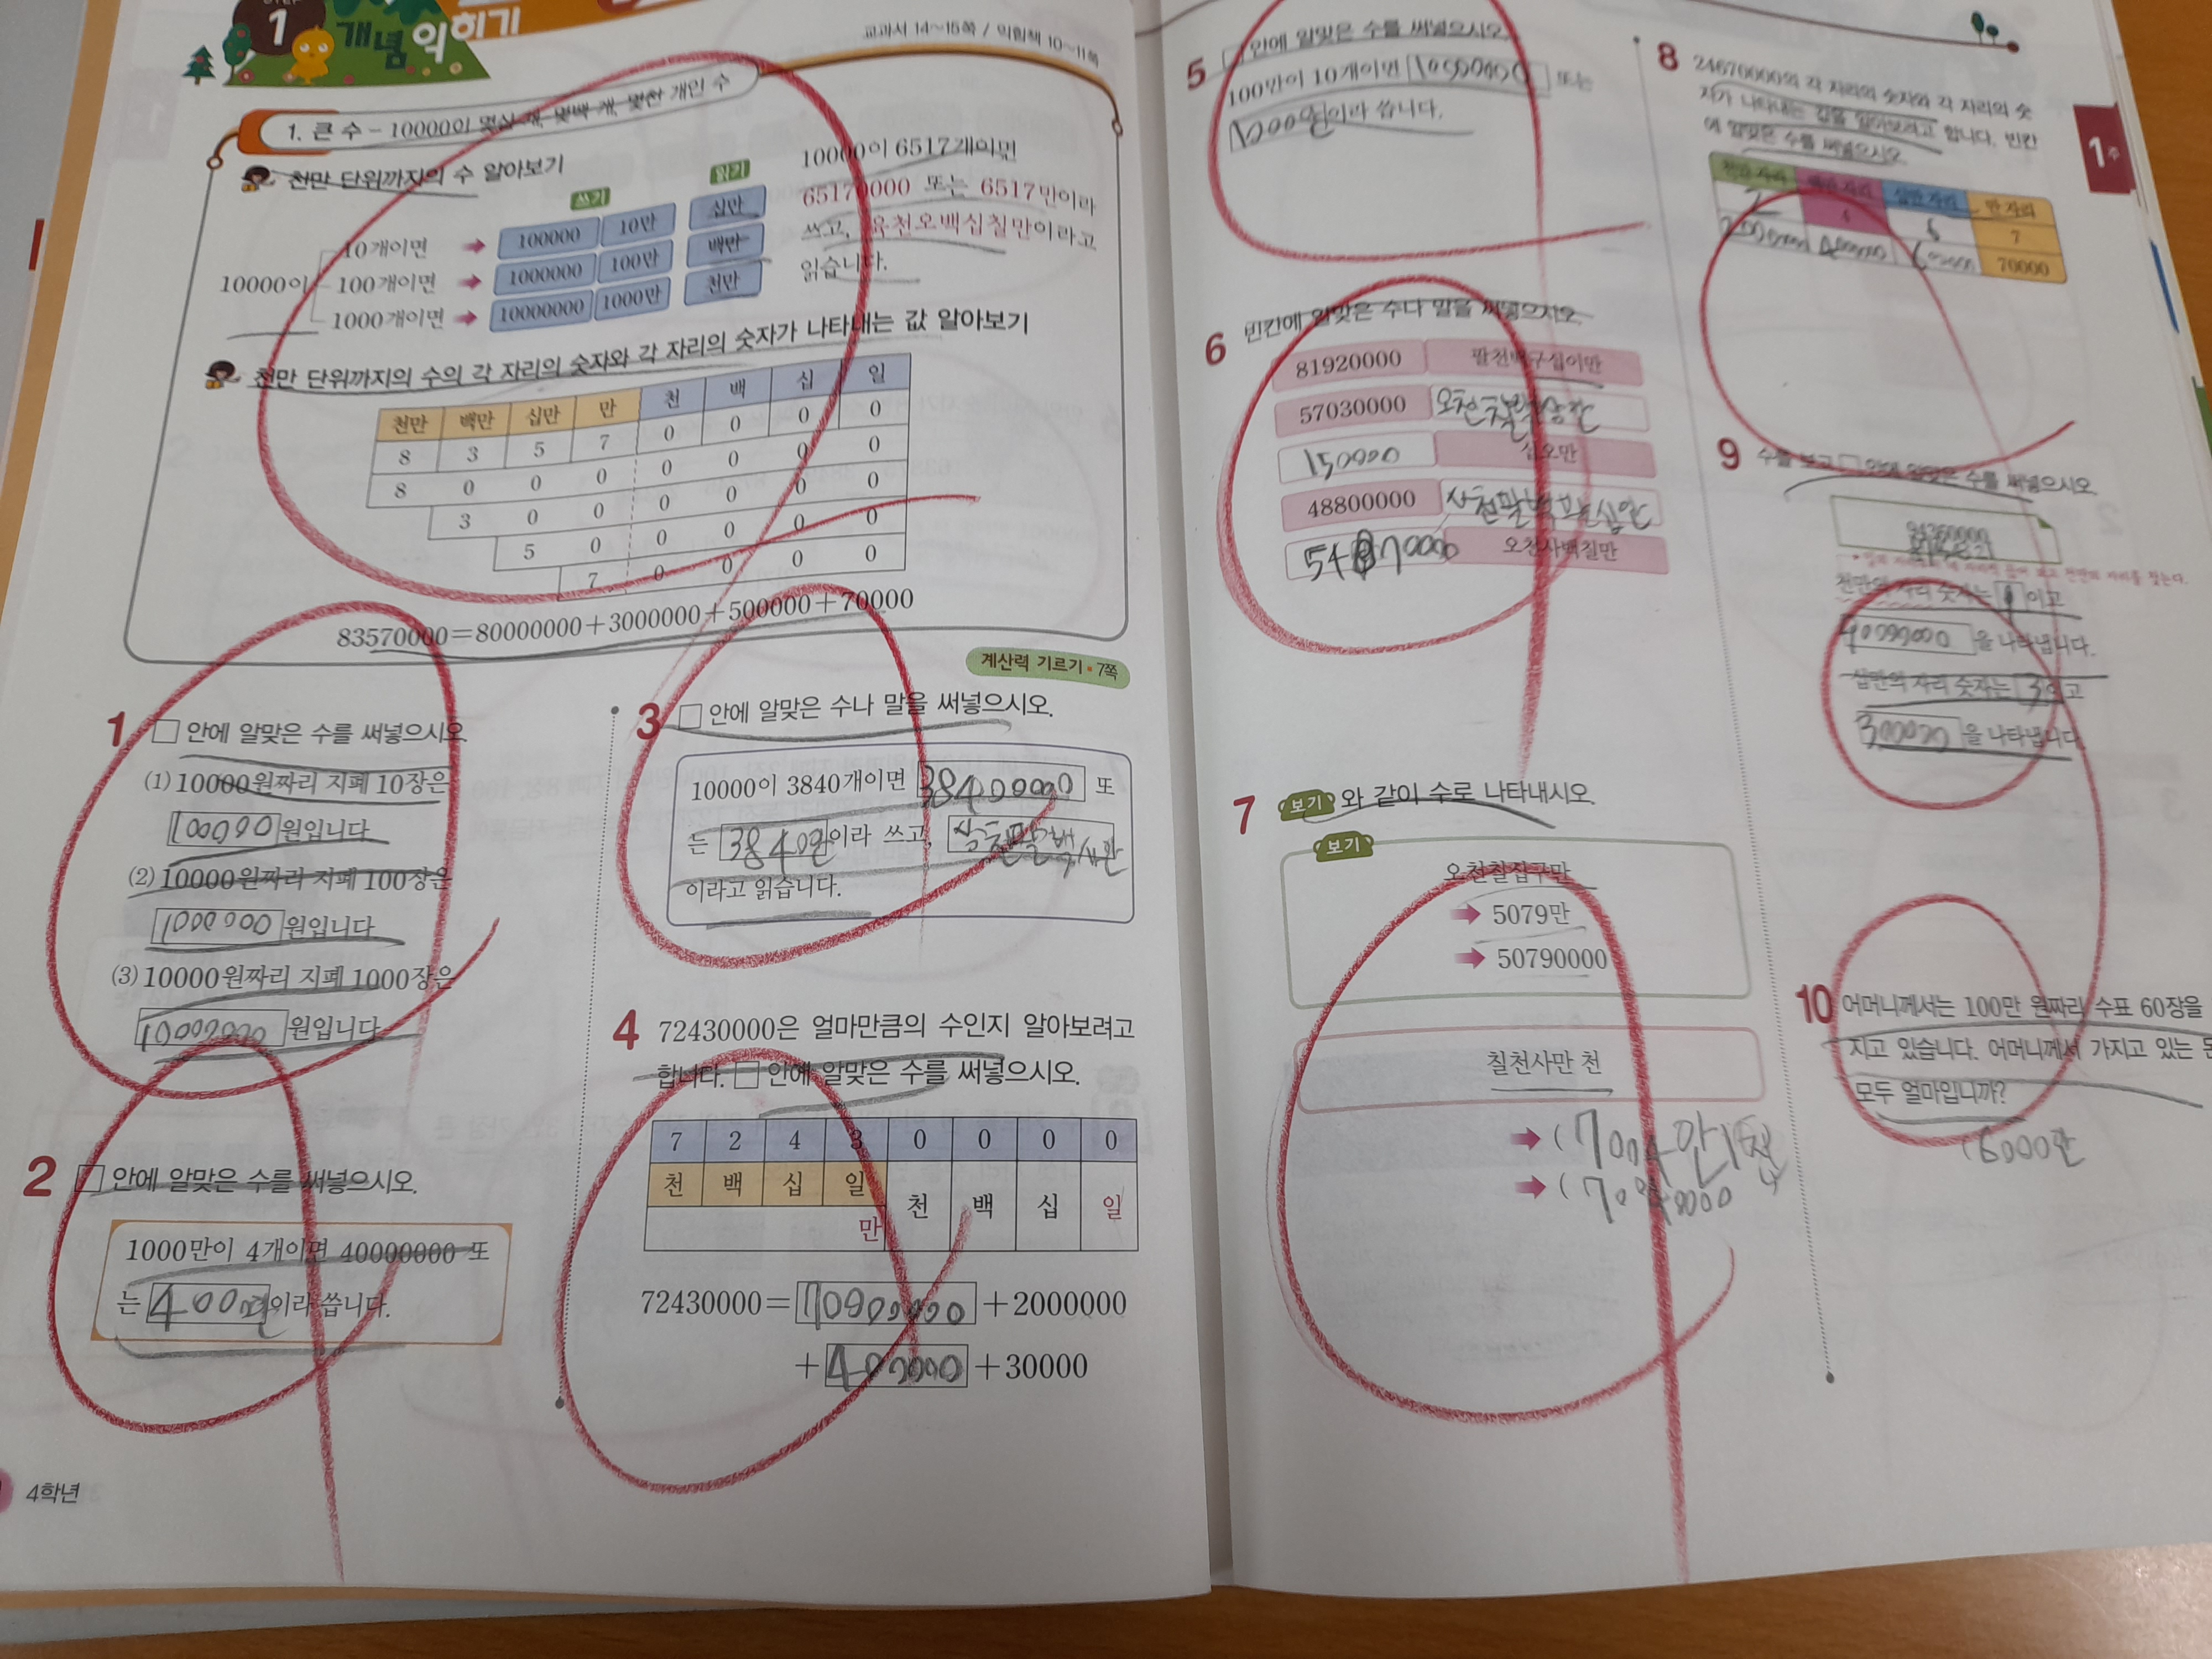 1
개념 익히기
교과서 14~15쪽 / 익힘책 10~11쪽
1. 큰 수 - 10000이 몇십 개, 몇백 개, 몇천 개인 수
천만 단위까지의 수 알아보기
쓰기 읽기
10000이
10개이면 100000 10만 십만
100개이면 1000000 100만 백만
1000개이면 10000000 1000만 천만
10000이 6517개이면
65170000 또는 6517만이라
쓰고, 육천오백십칠만이라고
읽습니다.
천만 단위까지의 수의 각 자리의 숫자와 각 자리의 숫자가 나타내는 값 알아보기
천만 백만 십만 만 천 백 십 일
8 3 5 7 0 0 0 0
8 0 0 0 0 0 0 0
3 0 0 0 0 0 0
5 0 0 0 0 0
7 0 0 0 0
83570000=80000000+3000000+500000+70000
계산력 기르기 • 7쪽
1 □ 안에 알맞은 수를 써넣으시오.
(1) 10000원짜리 지폐 10장은
100000 원입니다.
(2) 10000원짜리 지폐 100장은
1000000 원입니다.
(3) 10000원짜리 지폐 1000장은
10000000 원입니다.
2 □ 안에 알맞은 수를 써넣으시오.
1000만이 4개이면 40000000 또
는 4000만이라 씁니다.
4학년
3 □ 안에 알맞은 수나 말을 써넣으시오.
10000이 3840개이면 38400000 또
는 3840만이라 쓰고, 삼천팔백사십만
이라고 읽습니다.
4 72430000은 얼마만큼의 수인지 알아보려고
합니다. □ 안에 알맞은 수를 써넣으시오.
7 2 4 3 0 0 0 0
천 백 십 일 천 백 십 일
만
72430000= 70000000 +2000000
+ 400000 +30000
5 □ 안에 알맞은 수를 써넣으시오.
100만이 10개이면 10000000 또는
1000만이라 씁니다.
6 빈칸에 알맞은 수나 말을 써넣으시오.
81920000 팔천백구십이만
57030000 오천칠백삼만
150000 십오만
48800000 사천팔백팔십만
54070000 오천사백칠만
7 보기 와 같이 수로 나타내시오.
보기
오천칠십구만
→ 5079만
→ 50790000
칠천사만 천
→ ( 7004만1천
→ (
8 24670000의 각 자리의 숫자와 각 자리의 숫
자가 나타내는 값을 알아보려고 합니다. 빈칸
에 알맞은 수를 써넣으시오.
천만 자리 백만 자리 십만 자리 만 자리
2 4 6 7
70000
1주
9 수를 보고 □ 안에 알맞은 수를 써넣으시오.
천만의 자리 숫자는 이고
을 나타냅니다.
십만의 자리 숫자는 3이고
300000 을 나타냅니다.
10 어머니께서는 100만 원짜리 수표 60장을
지고 있습니다. 어머니께서 가지고 있는 돈
모두 얼마입니까?
( 6000만